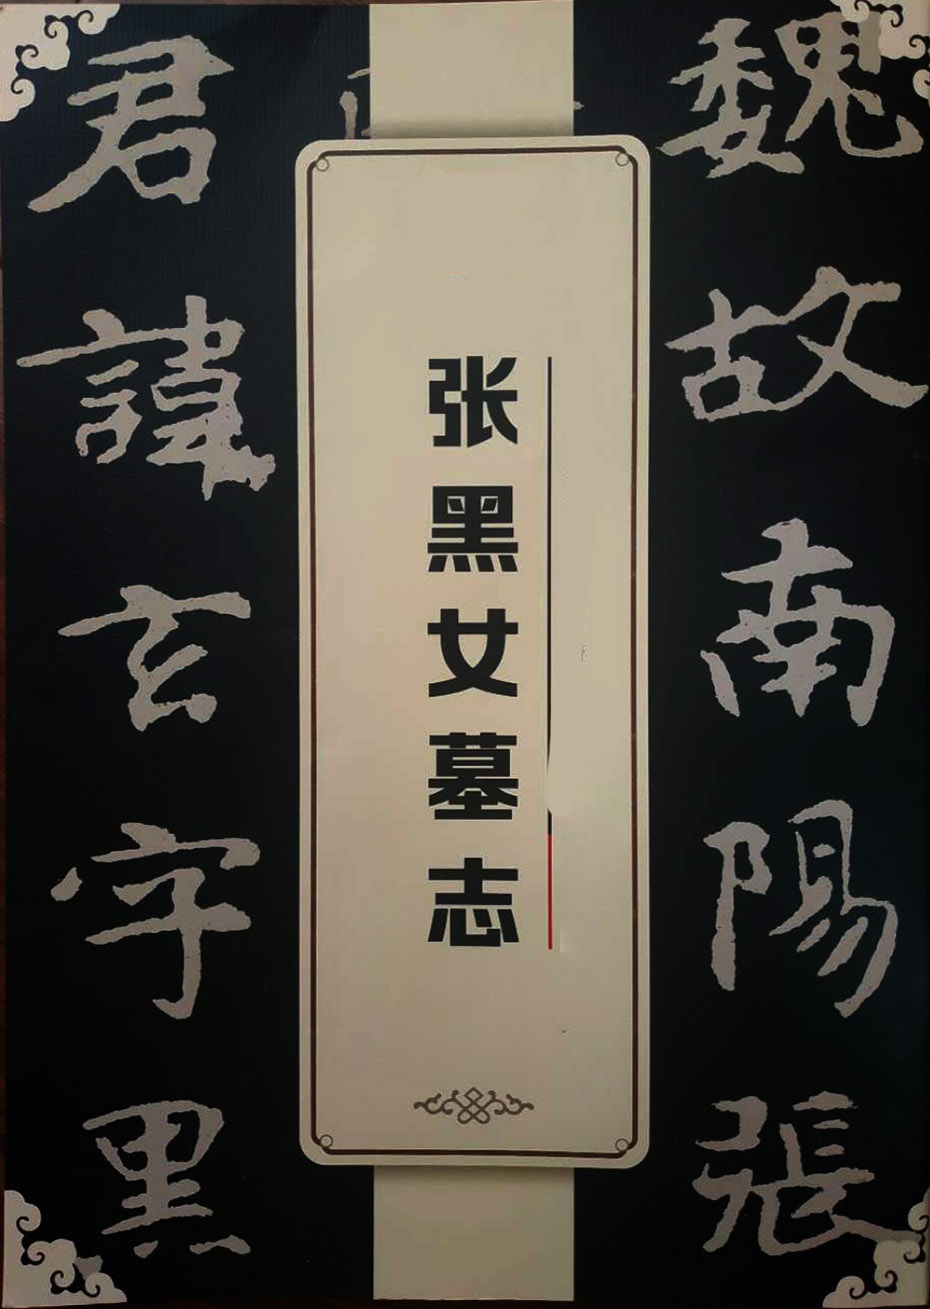 魏故南陽張
张黑女墓志
君諱玄字黑